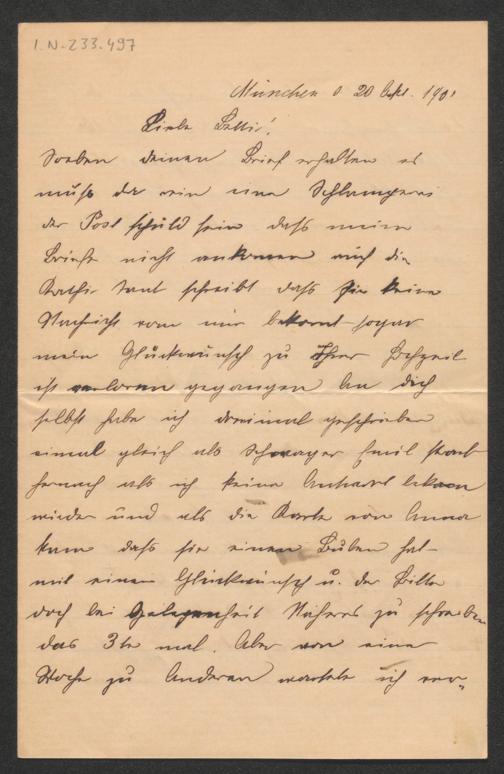 I.N-233.497
München d 20 Okt. 1901
Liebe Betti!
Soeben deinen Brief erhalten es
muß da rein eine Schlamperei
der Post schuld sein daß meine
Briefe nicht ankomen auch die
Kathi Tant schreibt daß sie keine
Nachricht von mir bekomt sogar
mein Glückwünsch zu Ihrer Hochzeit
ist verloren gegangen An dich
selbst habe ich dreimal geschrieben
einmal gleich als Schwager Emil starb
hernach als ich keine Antwort bekam
wieder und als die Karte von Anna
kam daß sie einen Buben hat
mit einem Glückwünsch u. der Bitte
doch bei Gelegenheit Näheres zu schreiben
das 3te mal. Aber von einer
Woche zu Anderen wartete ich ver„